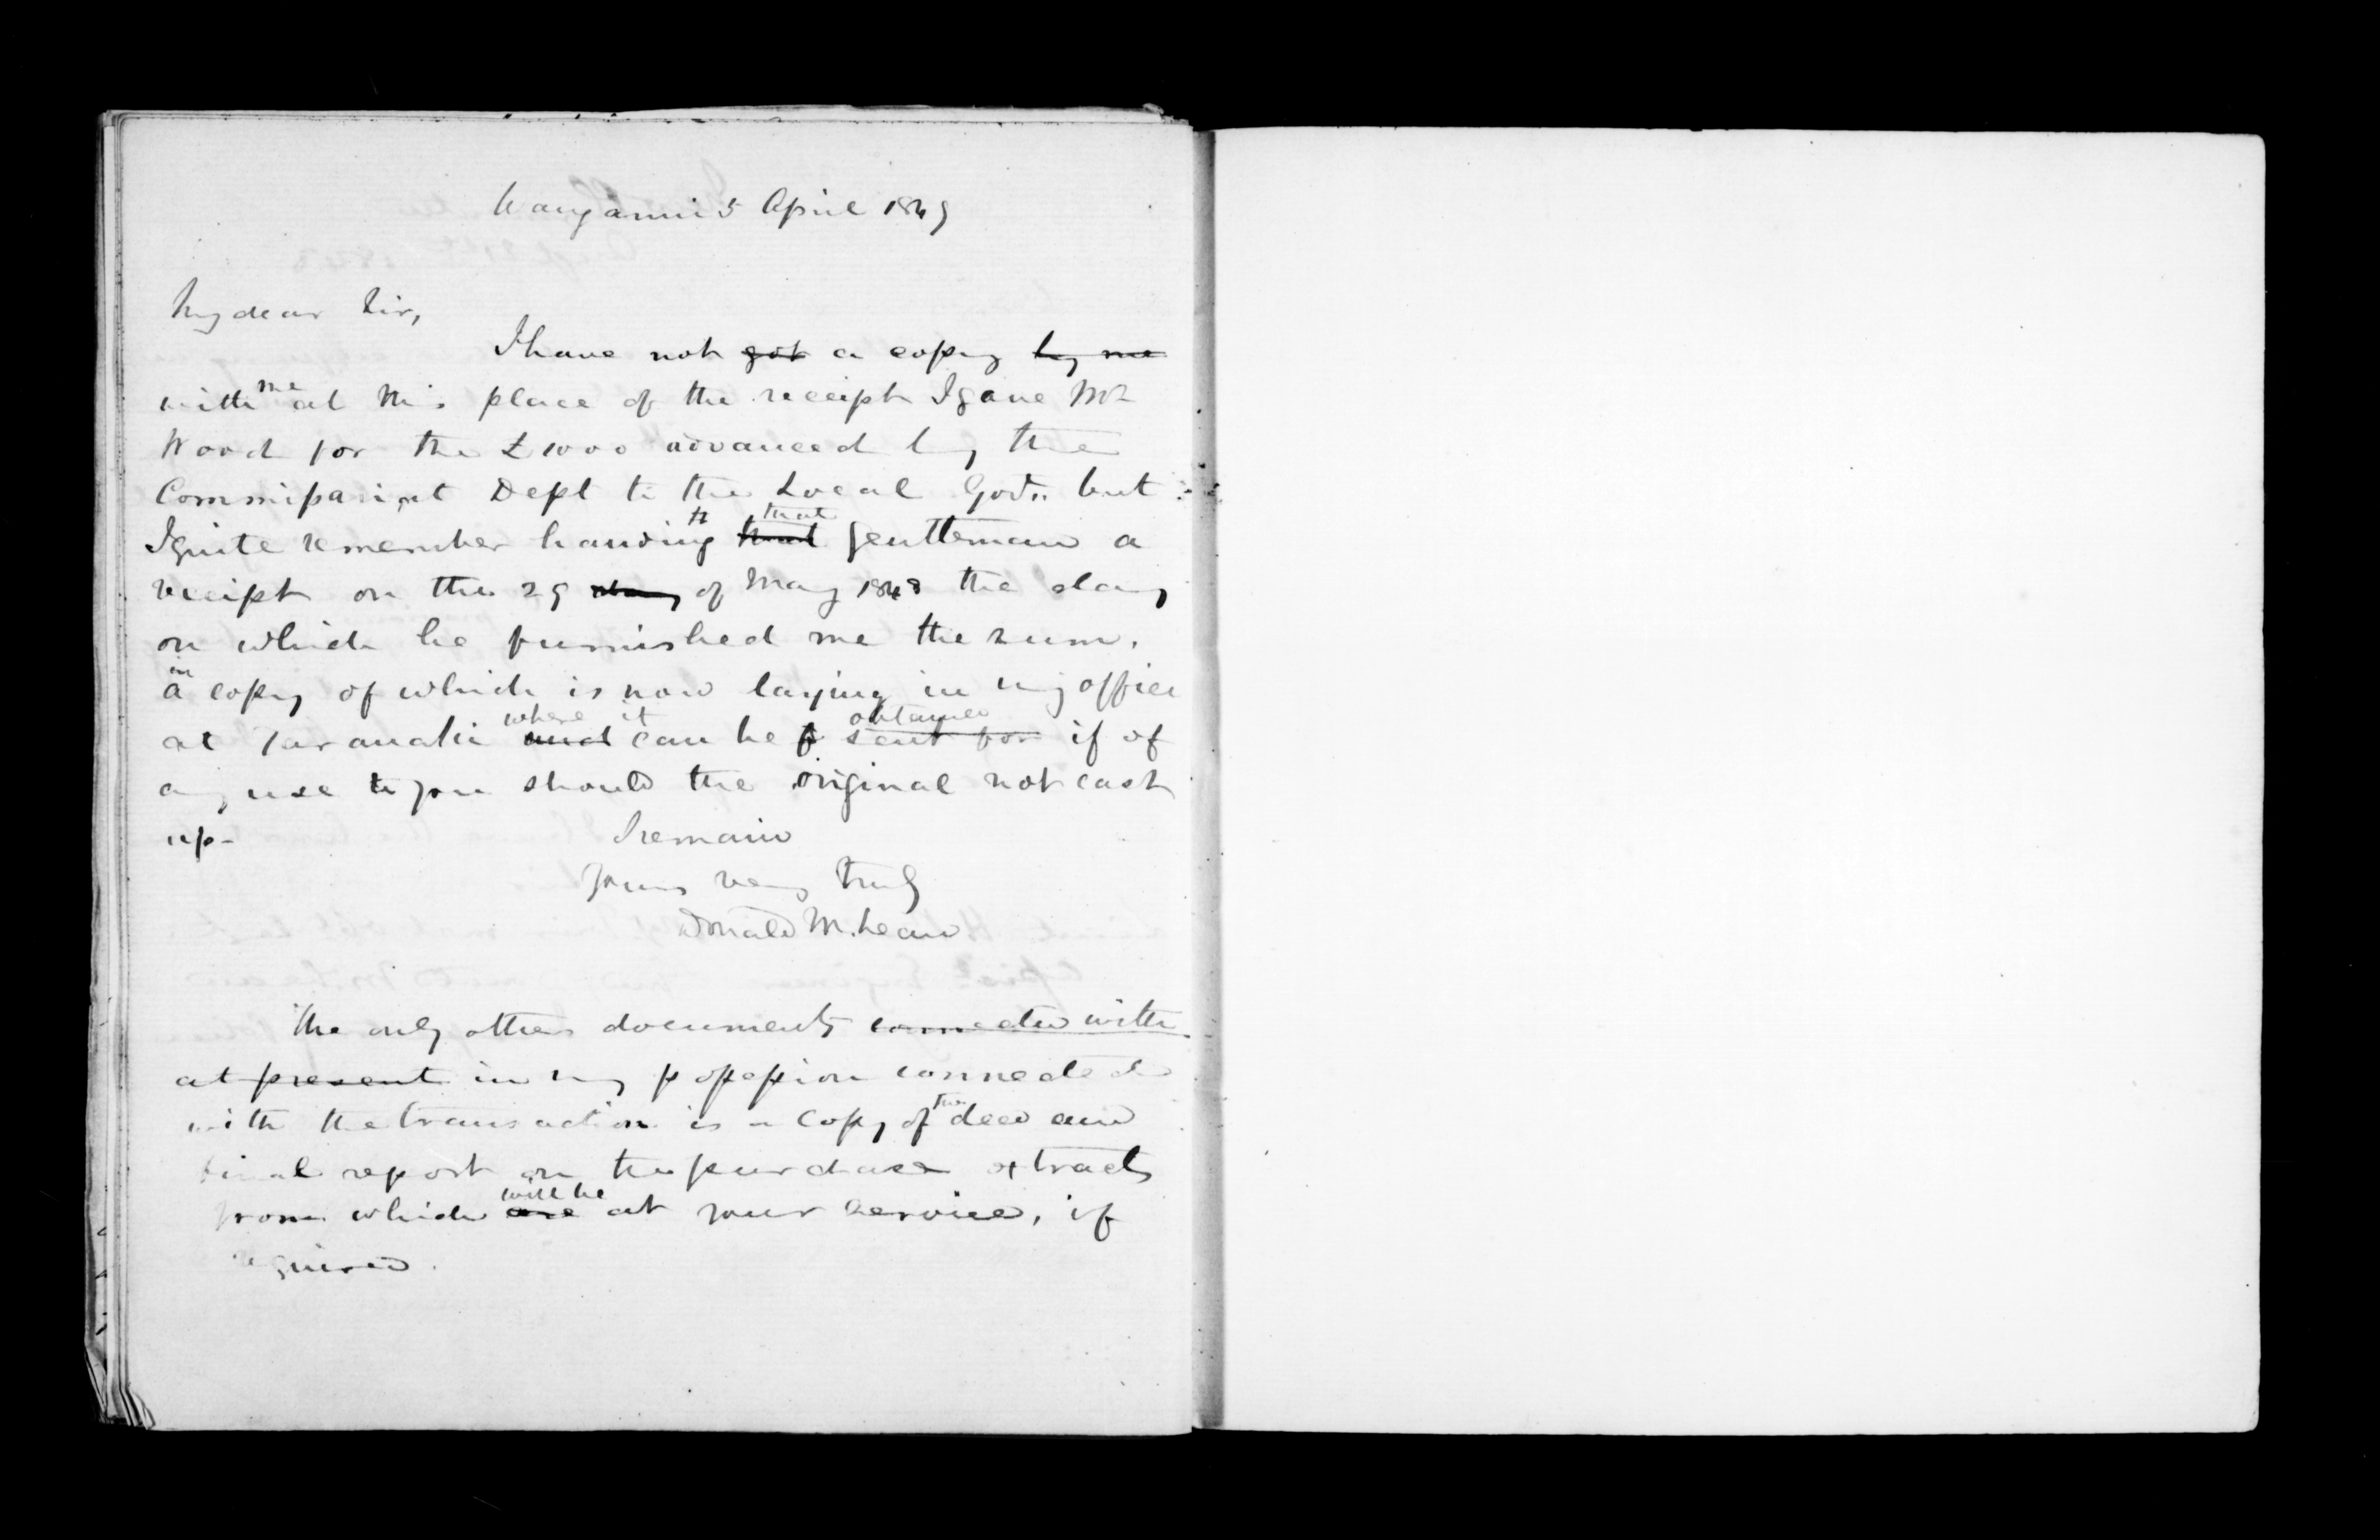 Wanganui 5 April 1849
My dear Sir,
I have not got a copy by me
with me at this place of the receipt I gave Mr
Wood for the £1000 advanced by the
Commissariat Dept to the Local Govt. but
I quite remember handing to that that gentleman a
receipt on the 29 May of May 1848 the day
on which he furnished me the sum.
a copy of which is now laying in my office
at Taranaki where it and can be obtained sent for if of
any use to you should the original not cast
up-
I remain
Yours very truly
Donald McLean
The only other documents connected with
at present in my possession connected
with the transaction is a copy of the deed and
final report on the purchase extracts
from which will be are at your service, if
required.